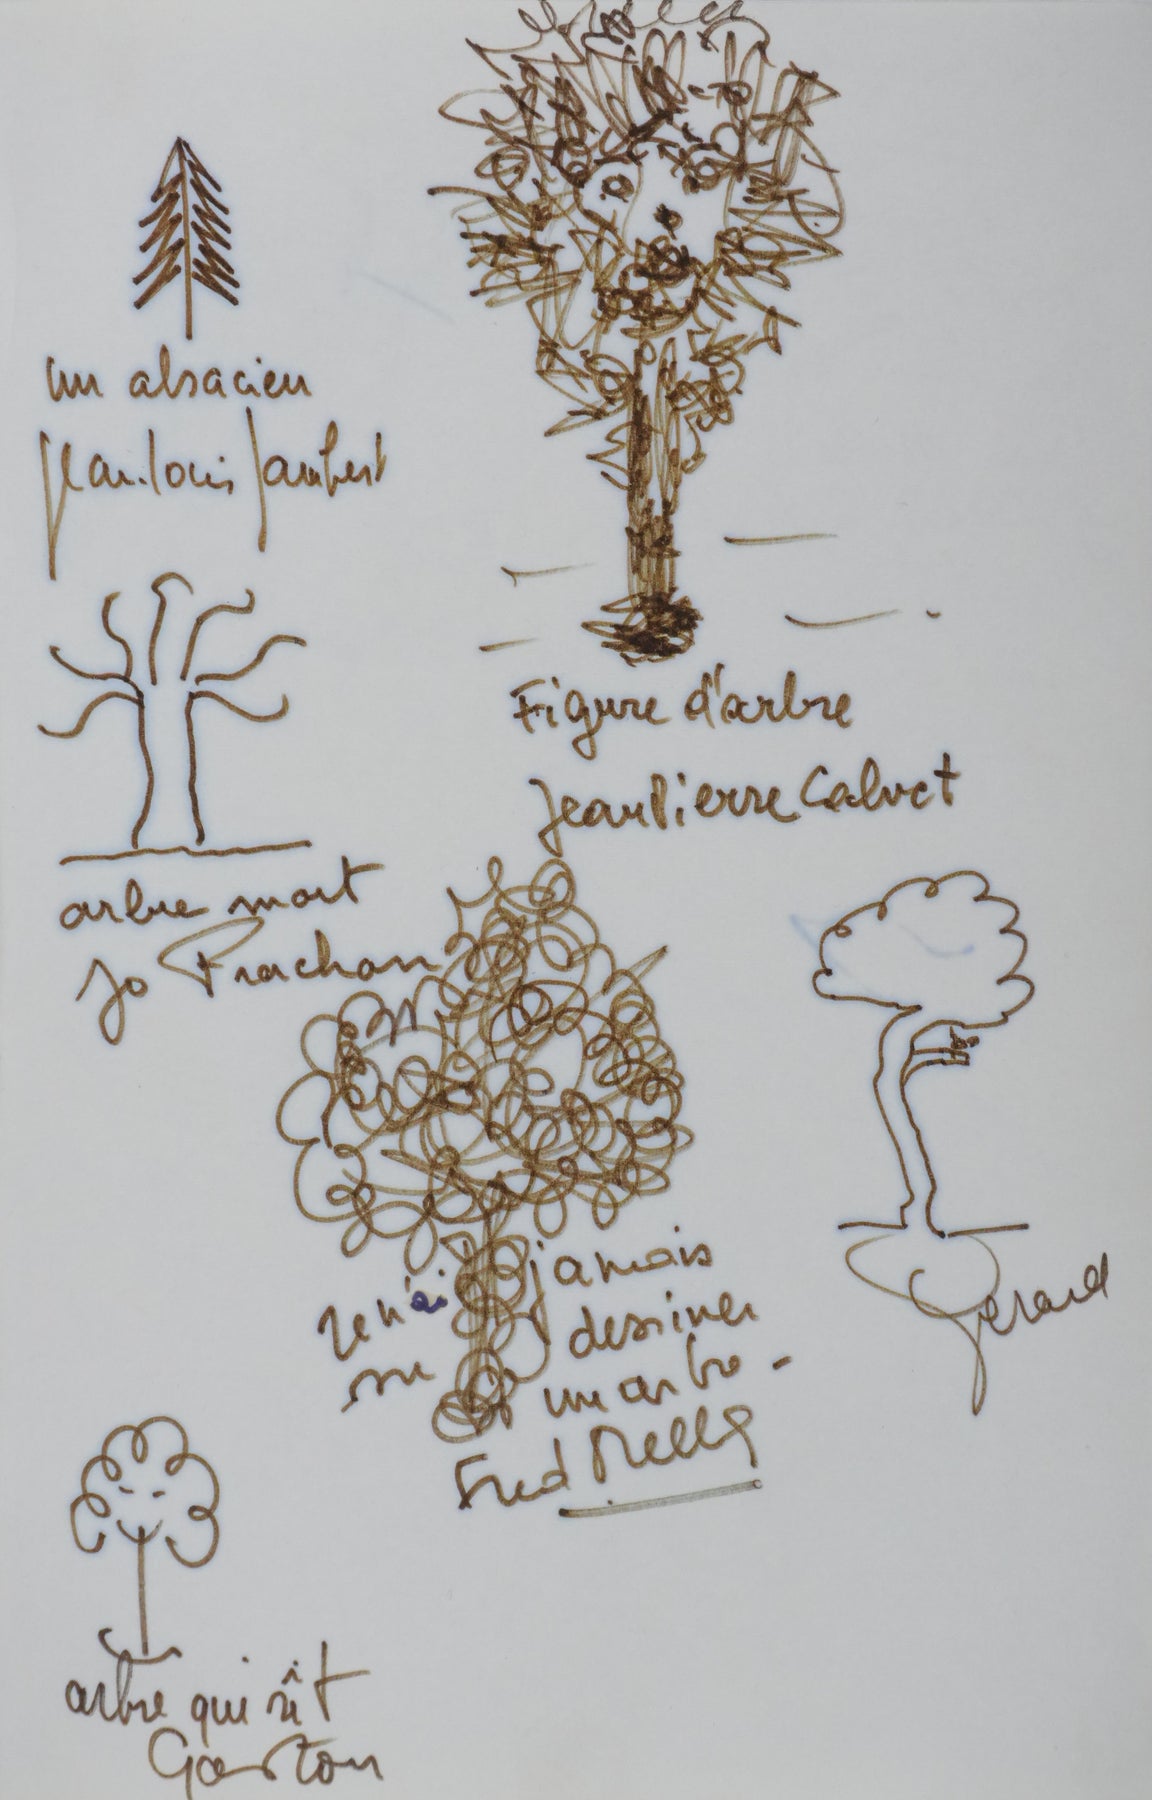 un alsacien
Jean-Louis Jaubert
Figure d'arbre
Jean Pierre Calvet
arbre mort
Jo Frachon
Gérard
Je n'ai jamais
su dessiner
un arbre -
Fred Mella
arbre qui rît
Gaston